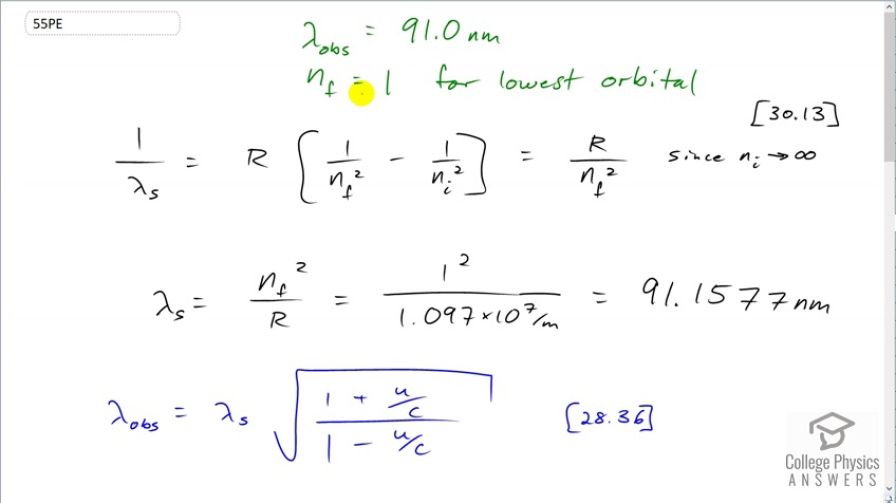 55PE
λobs = 91.0 nm
nf = 1 for lowest orbital
[30.13]
1/λs = R [1/nf² − 1/ni²] = R/nf² since ni → ∞
λs = nf²/R = 1²/1.097×10⁷/m = 91.1577 nm
λobs = λs √((1 + u/c)/(1 − u/c)) [28.36]
College Physics
ANSWERS